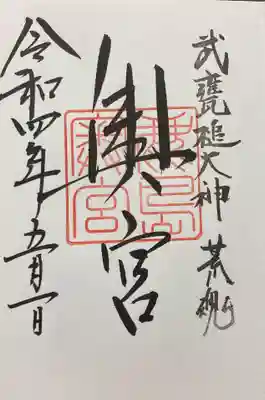 武甕槌大神 荒魂
奥宮
鹿島神宮
令和四年五月一日